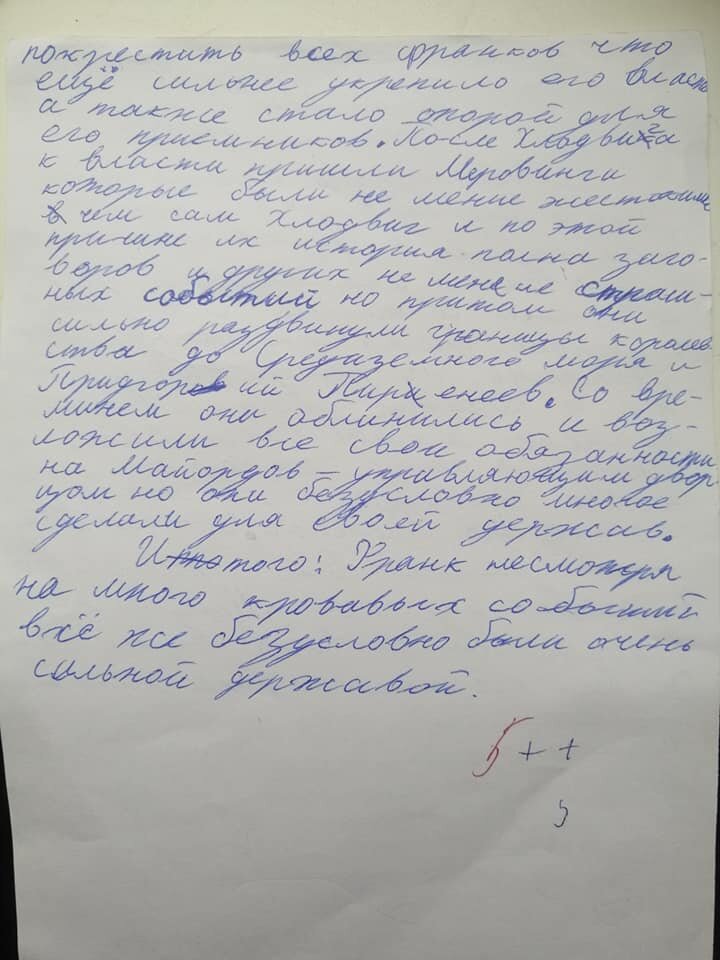 покрестить всех франков что
ещё сильнее укрепило его власть
а также стало опорой для
его приемников. После Хлодвига
к власти пришли Меровинги
которые были не мение жестокими
чем сам Хлодвиг и по этой
причине их история полна заго-
воров и других не менее страш-
ных событий но притом они
сильно раздвинули границы королев-
ства до Средиземного моря и
Придгорий Пиренеев. Со вре-
минем они обленились и воз-
ложили все свои обязанности
на Майордов – управляющим двор-
цом но они безусловно многое
сделали для своей державы.
Итого: Франк несмотря
на много кровавых событий
всё же безусловно были очень
сильной державой.
5 + +
5